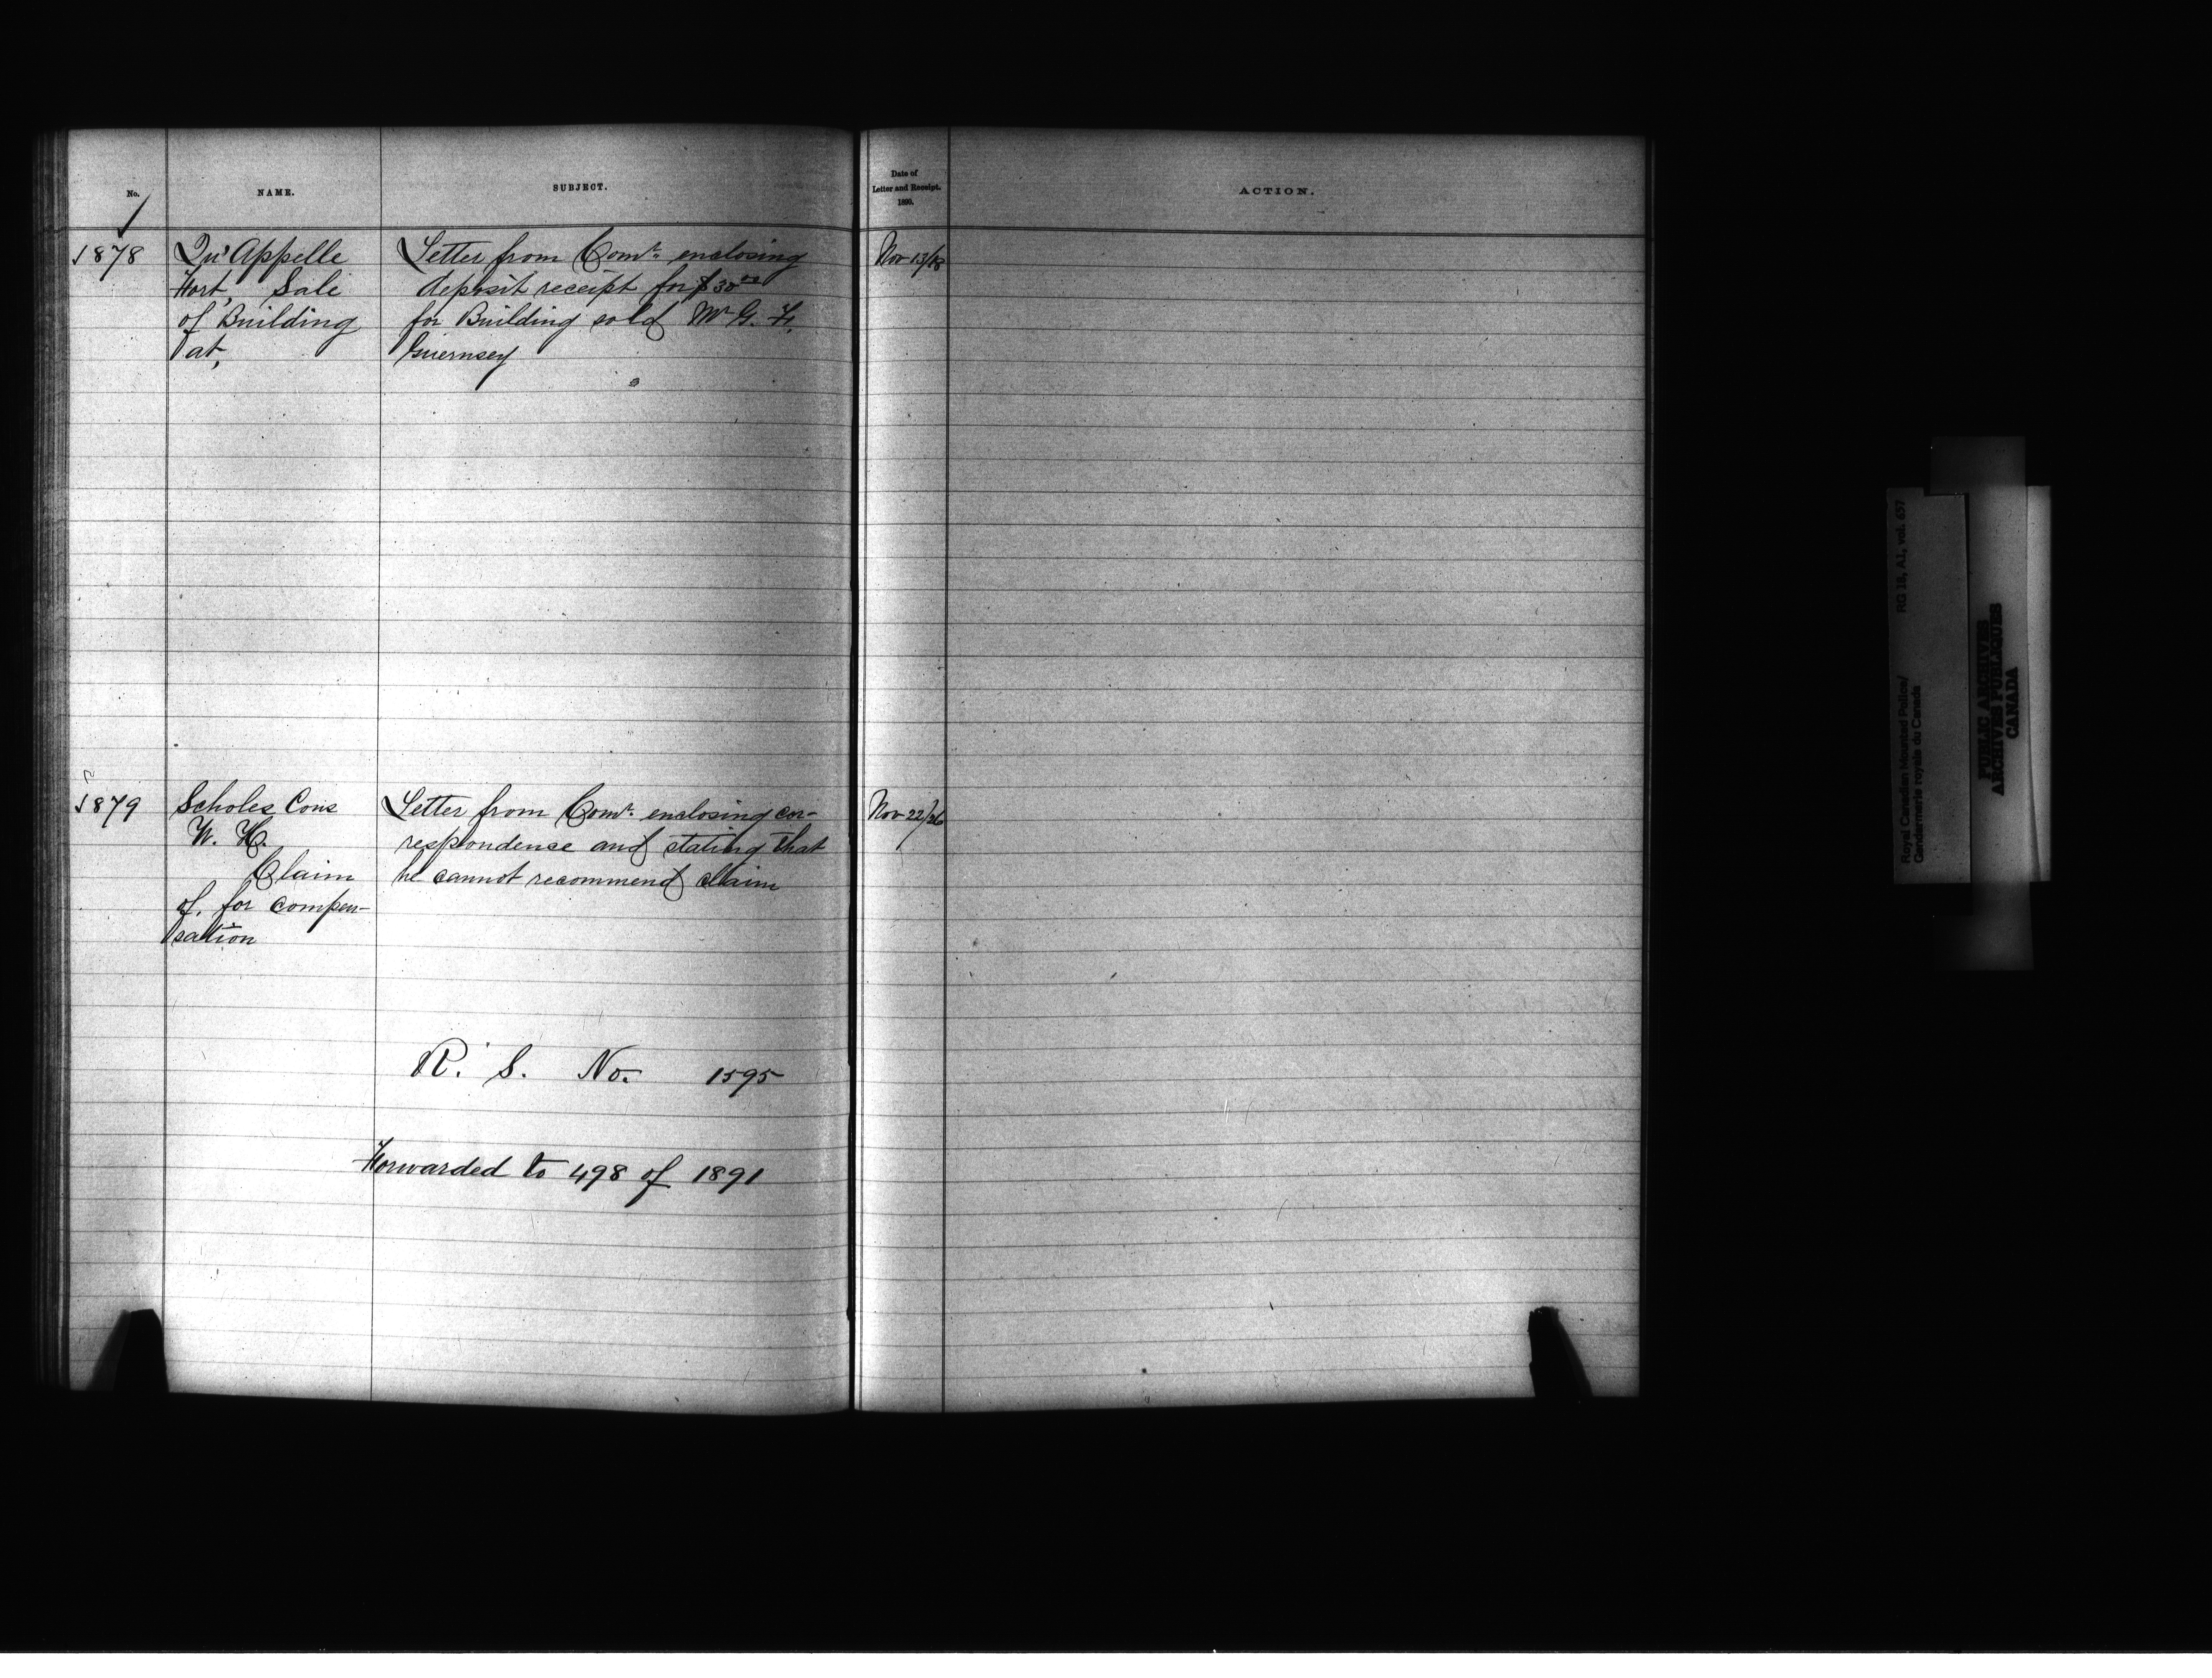 No.
NAME.
SUBJECT.
Date of
Letter and Receipt.
1890.
ACTION.
1878
Qu'Appelle
Fort, Sale
of Building
at,
Letter from Comr. enclosing
deposit receipt for $30.00
for Building sold Mr G. F.
Guernsey
Nov 13/18
1879
Scholes Cons
W. H.
Claim
of, for compen-
sation
Letter from Comr. enclosing cor-
respondence and stating that
he cannot recommend claim
Nov 22/26
R. S. No. 1595
Forwarded to 498 of 1891
Royal Canadian Mounted Police/
Gendarmerie royale du Canada
RG 18, A1, vol. 657
PUBLIC ARCHIVES
ARCHIVES PUBLIQUES
CANADA